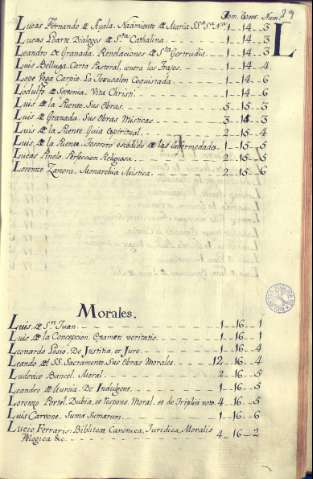 Tom. Estant. Num. 89
L
Lucas Fernando de Ayala. Nacimiento de Maria SSª 1 .. 14 .. 3
Lucas Duarte Dialogos de Sta Cathalina 1 .. 14 .. 3
Leandro de Granada. Revelaciones de Sta Gertrudis 1 .. 14 .. 3
Luis Belluga Carta Pastoral, contra los Trajes 1 .. 14 .. 4
Lope Vega Carpio. La Jerusalen Conquistada 1 .. 14 .. 6
Lodulfo de Saxonia. Vita Christi 1 .. 14 .. 6
Luis de la Puente Sus Obras 3 .. 15 .. 3
Luis de Granada. Sus Obras Misticas 3 .. 15 .. 3
Luis de la Puente Guia Espiritual 2 .. 15 .. 4
Luis de la Puente, Thesoro escondido de las enfermedades 1 .. 15 .. 5
Lucas Pinelo Perfeccion Religiosa 2 .. 15 .. 5
Lorenzo Zamora, Monarchia Mistica 2 .. 15 .. 6
Morales.
Luis de Sn Juan 1 .. 16 .. 1
Luis de la Concepcion. Examen veritatis 1 .. 16 .. 1
Leonardo Lesio. De Justitia, et Jure 1 .. 16 .. 4
Leandro de SS. Sacramento Sus Obras Morales 12 .. 16 .. 4
Ludovico Bancel. Moral 2 .. 16 .. 5
Leandro de Murcia. De Indulgens 1 .. 16 .. 5
Lorenzo Portel. Dubia, et Respons. Moral. et de Triplici voto 4 .. 16 .. 5
Luis Carbone, Suma Sumarum 1 .. 16 .. 6
Lucio Ferrario, Biblitea Canonica, Juridica Moralis
&c. 4 .. 16 .. 2